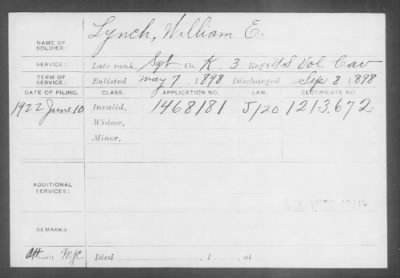 NAME OF SOLDIER: Lynch, William E.
SERVICE: Late rank, Sgt Co. K. 3 Reg't U S Vol Cav
TERM OF SERVICE: Enlisted may 7, 1898 Discharged Sep 8, 1898
DATE OF FILING. CLASS. APPLICATION NO. LAW. CERTIFICATE NO.
1922 June 10 Invalid, 1468181 J/20 1213.672
Widow,
Minor,
ADDITIONAL SERVICES:
REMARKS:
Died , 1 , at